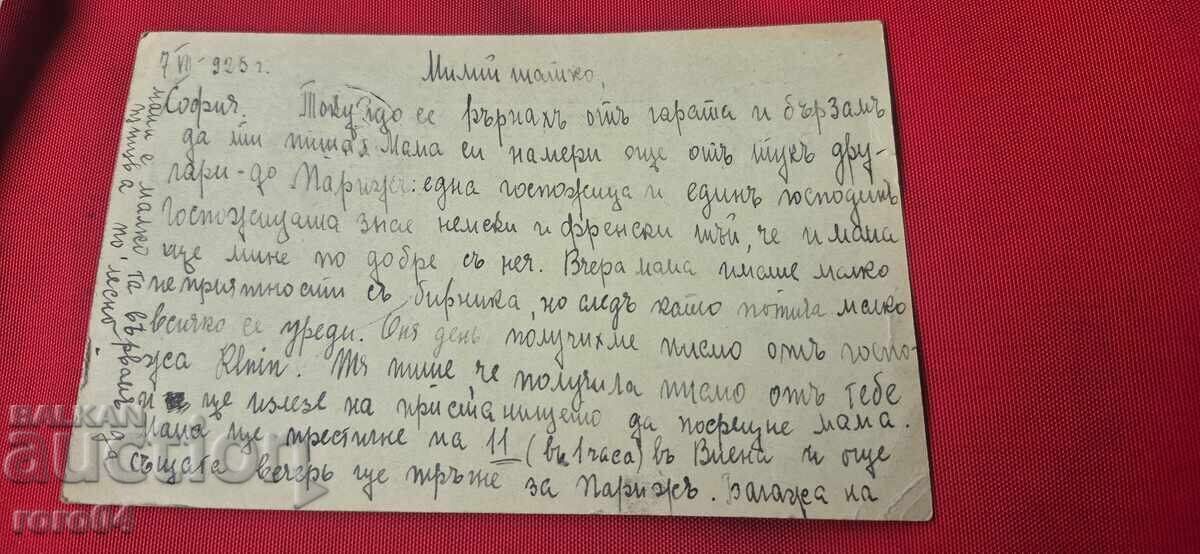 7 VII 925 г.
Милий татко,
София. Току що се върнахъ отъ гарата и бързамъ
да ти пиша. Мама си намери още отъ тукъ дру-
гари-до Парижъ: една госпожица и единъ господинъ
Госпожицата знае немски и френски тъй, че и мама
ще мине по добре съ нея. Вчера мама имаше малко
неприятности съ бирника, но следъ като потича малко
всичко се уреди. Оня день получихме писмо отъ госпо-
жа Klein. Тя пише, че получила писмо отъ тебе
и ще излезе на пристанището да посрещне мама.
Мама ще пристигне на 11 (въ 1 часа) въ Виена и още
същата вечерь ще тръгне за Парижъ. Багажа на
мама е малко та вървамъ да
пътува по лесно
BALKAN
auction
roro04